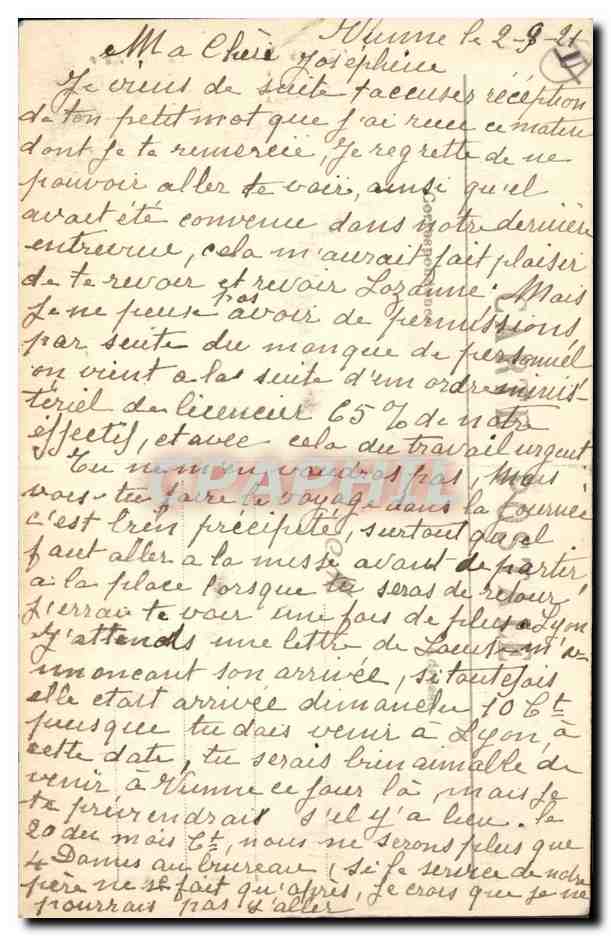 Vienne le 2-9-21
II
Ma Chère Joséphine
Je viens de suite t'accuser réception
de ton petit mot que j'ai reçu ce matin
dont je te remercie, Je regrette de ne
pouvoir aller te voir, ainsi qu'il
avait été convenu dans notre dernière
entrevue, cela m'aurait fait plaisir
de te revoir et revoir Lozanne. Mais
Je ne peuse pas avoir de permissions
par suite du manque de personnel
on vient a la suite d'un ordre minis-
tériel de licencier 65% de notre
effectif, et avec cela du travail urgent
Tu ne m'en voudras pas, Mais
vois-tu faire le voyage dans la journée
c'est bien précipité, surtout qu'il
faut aller a la messe avant de partir,
a la place lorsque tu seras de retour
j'irrai te voir une fois de plus a Lyon
J'attends une lettre de m'a-
nnonçant son arrivée, si toutefois
elle était arrivée dimanche 10 Ct
puisque tu dois venir à Lyon, à
cette date, tu serais bien aimable de
venir à Vienne ce jour là, mais je
te préviendrais s'il y'a lieu. le
20 du mois Ct, nous ne serons plus que
4 Dames au bureau, (si le service de notre
père ne se fait qu'après, je crois que je ne
pourrais pas y aller
CARTE POSTALE
Correspondance
CPAPHIL